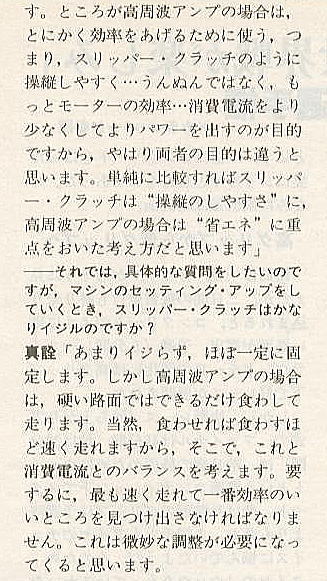 す。ところが高周波アンプの場合は,
とにかく効率をあげるために使う，つ
まり，スリッパー・クラッチのように
操縦しやすく…うんぬんではなく，も
っとモーターの効率…消費電流をより
少なくしてよりパワーを出すのが目的
ですから，やはり両者の目的は違うと
思います。単純に比較すればスリッパ
ー・クラッチは“操縦のしやすさ”に,
高周波アンプの場合は“省エネ”に重
点をおいた考え方だと思います」
――それでは，具体的な質問をしたいので
すが，マシンのセッティング・アップをし
ていくとき，スリッパー・クラッチはかな
りイジルのですか？
真詮「あまりイジらず，ほぼ一定に固
定します。しかし高周波アンプの場合
は，硬い路面ではできるだけ食わして
走ります。当然，食わせれば食わすほ
ど速く走れますから，そこで，これと
消費電流とのバランスを考えます。要
するに，最も速く走れて一番効率のい
いところを見つけ出さなければなりま
せん。これは微妙な調整が必要になっ
てくると思います。